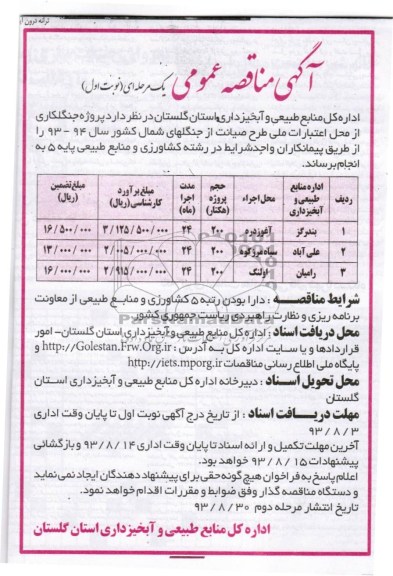 آگهی مناقصه عمومی یک مرحله‌ای (نوبت اول)
اداره کل منابع طبیعی و آبخیزداری استان گلستان در نظر دارد پروژه جنگلکاری
از محل اعتبارات ملی طرح صیانت از جنگلهای شمال کشور سال ۹۴ - ۹۳ را
از طریق پیمانکاران واجد شرایط در رشته کشاورزی و منابع طبیعی پایه ۵ به
انجام برساند.
ردیف اداره منابع طبیعی و آبخیزداری محل اجراء حجم پروژه (هکتار) مدت اجرا (ماه) مبلغ برآورد کارشناسی (ریال) مبلغ تضمین (ریال)
۱ بندرگز آغوزدره ۲۰۰ ۲۴ ۳/۱۲۵/۵۰۰/۰۰۰ ۱۶/۵۰۰/۰۰۰
۲ علی‌آباد سیاه مرزکوه ۲۰۰ ۲۴ ۲/۰۰۵/۰۰۰/۰۰۰ ۱۳/۰۰۰/۰۰۰
۳ رامیان اولنگ ۲۰۰ ۲۴ ۲/۹۱۵/۰۰۰/۰۰۰ ۱۶/۰۰۰/۰۰۰
شرایط مناقصه : دارا بودن رتبه ۵ کشاورزی و منابع طبیعی از معاونت
برنامه ریزی و نظارت راهبردی ریاست جمهوری کشور
محل دریافت اسناد : اداره کل منابع طبیعی و آبخیزداری استان گلستان - امور
قراردادها و یا سایت اداره کل به آدرس : http://Golestan.Frw.Org.ir و
پایگاه ملی اطلاع رسانی مناقصات http://iets.mporg.ir
محل تحویل اسناد : دبیرخانه اداره کل منابع طبیعی و آبخیزداری استان
گلستان
مهلت دریافت اسناد : از تاریخ درج آگهی نوبت اول تا پایان وقت اداری
۹۳/۸/۳
آخرین مهلت تکمیل و ارائه اسناد تا پایان وقت اداری ۹۳/۸/۱۴ و بازگشائی
پیشنهادات ۹۳/۸/۱۵ خواهد بود.
اعلام پاسخ به فراخوان هیچ گونه حقی برای پیشنهاد دهندگان ایجاد نمی نماید
و دستگاه مناقصه گذار وفق ضوابط و مقررات اقدام خواهد نمود.
تاریخ انتشار مرحله دوم ۹۳/۸/۳۰
اداره کل منابع طبیعی و آبخیزداری استان گلستان